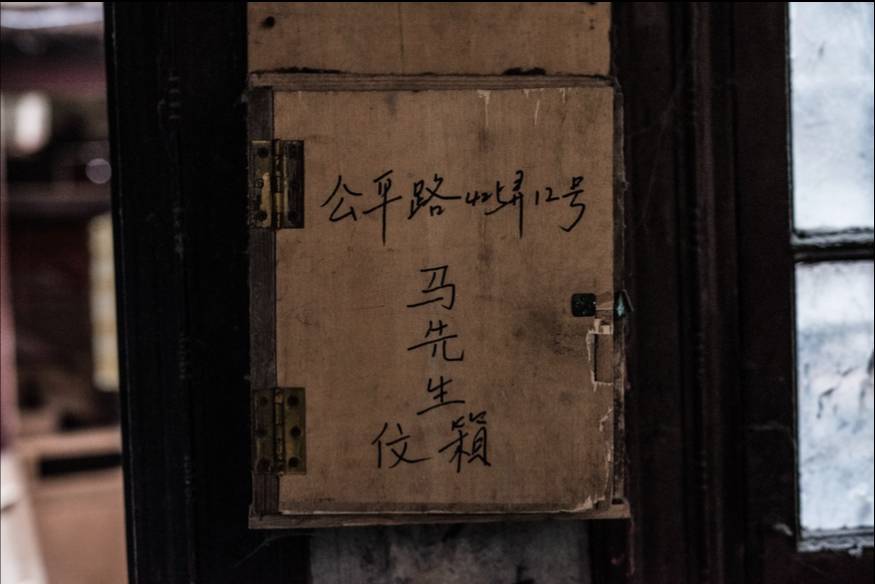 公平路425弄12号
马先生
伩箱